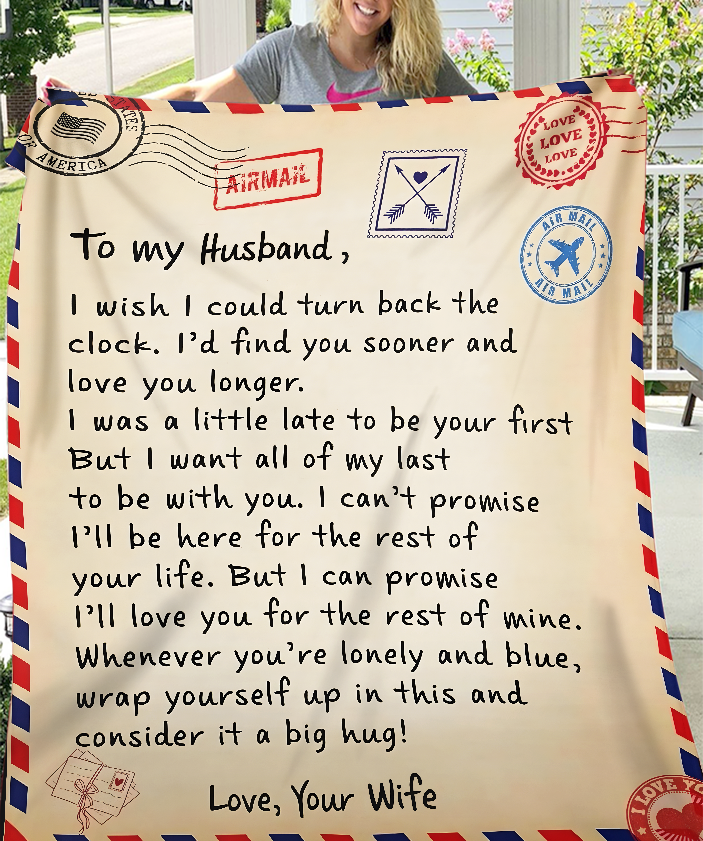 OF AMERICA
AIRMAIL
LOVE
LOVE
LOVE
AIR MAIL
AIR MAIL
To my Husband,
I wish I could turn back the
clock. I'd find you sooner and
love you longer.
I was a little late to be your first
But I want all of my last
to be with you. I can't promise
I'll be here for the rest of
your life. But I can promise
I'll love you for the rest of mine.
Whenever you're lonely and blue,
wrap yourself up in this and
consider it a big hug!
Love, Your Wife
I LOVE YO